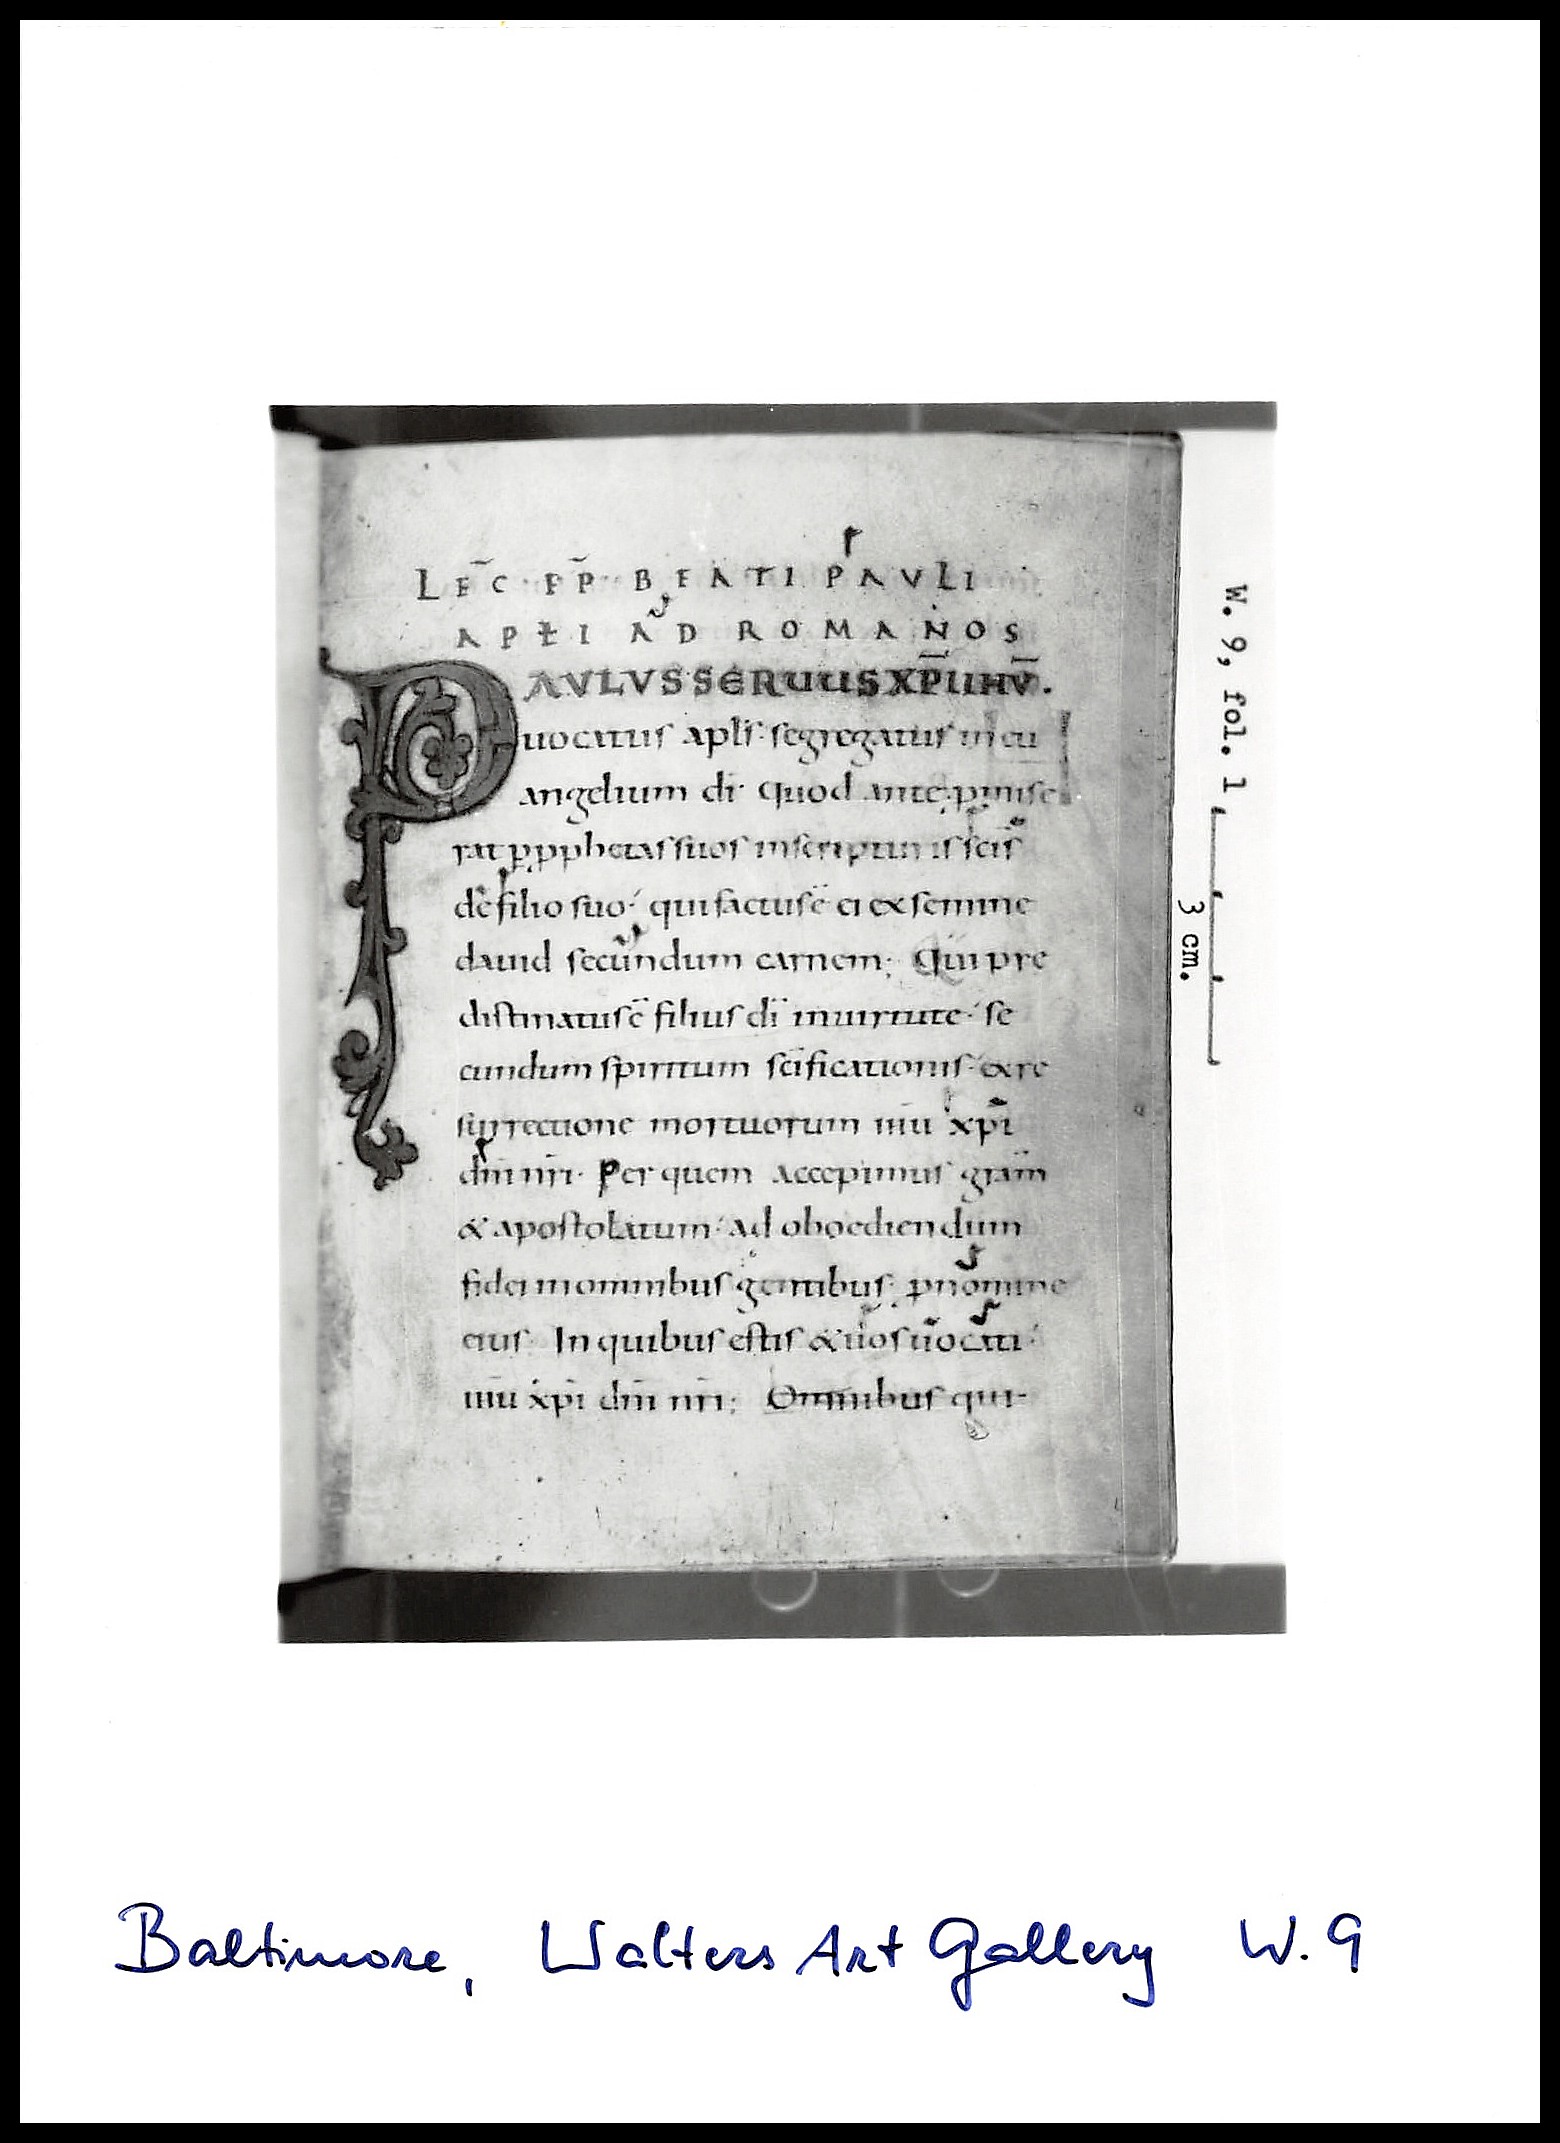 LEC̄ EP̄ BEATI PAVLI
APƗI AD ROMANOS
PAULVS SERUUS XP̄I IHV̄.
uocatus apl̄s· segregatus in eu
angelium dī· quod ante promise
rat p pphetas suos in scripturis sc̄is
de filio suo· qui factus ē ei ex semine
dauid secundum carnem; Qui pre
distinatus ē filius dī in uirtute· se
cundum spiritum sc̄ificationis· ex re
surrectione mortuorum ihū xp̄i
dn̄i nr̄i· Per quem accepimus grām
& apostolatum· ad oboediendum
fidei in omnibus gentibus· p nomine
eius· In quibus estis & uos uocati·
ihū xp̄i dn̄i nr̄i; Omnibus qui
W. 9, fol. 1
3 cm.
Baltimore, Walters Art Gallery W. 9